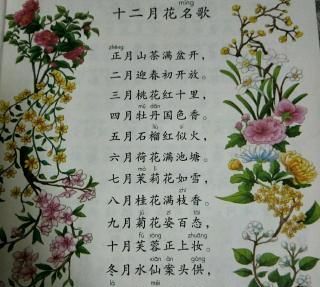 míng
十二月花名歌
zhēng
正月山茶满盆开，
二月迎春初开放。
三月桃花红十里，
mǔ dān
四月牡丹国色香。
liú
五月石榴红似火，
六月荷花满池塘。
mò lì
七月茉莉花如雪，
zhī
八月桂花满枝香。
jú zī tài
九月菊花姿百态，
fú róng zhuāng
十月芙蓉正上妆。
xiān àn gòng
冬月水仙案头供，
là méi